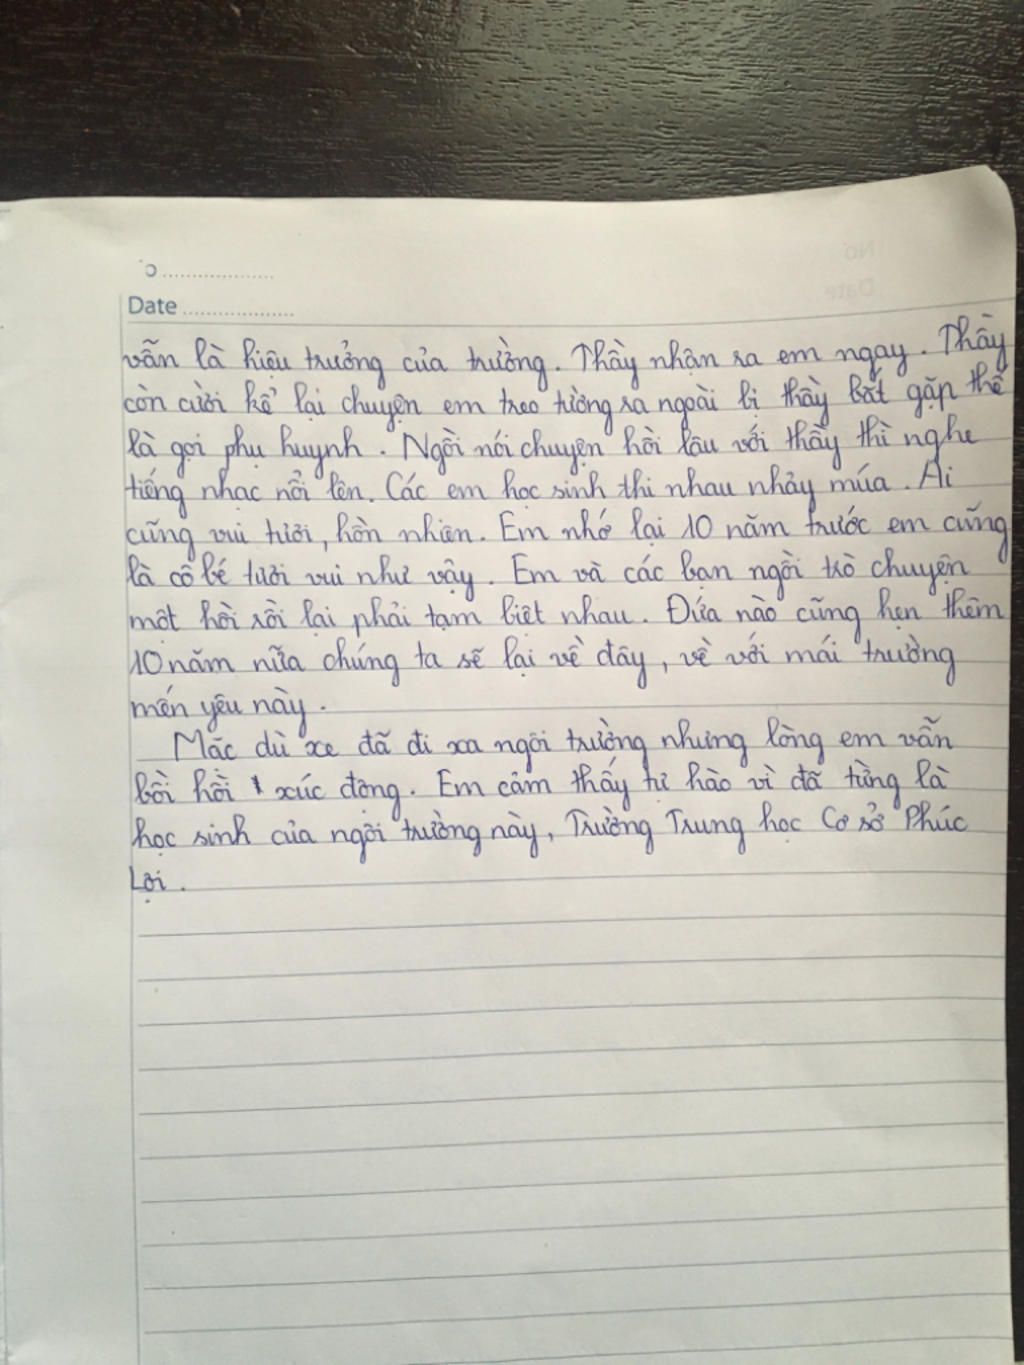 o ...................
Date ...................
vẫn là hiệu trưởng của trường. Thầy nhận ra em ngay. Thầy
còn cười kể lại chuyện em treo tường ra ngoài bị thầy bắt gặp thế
là gọi phụ huynh. Ngồi nói chuyện hồi lâu với thầy thì nghe
tiếng nhạc nổi lên. Các em học sinh thi nhau nhảy múa. Ai
cũng vui tươi, hồn nhiên. Em nhớ lại 10 năm trước em cũng
là cô bé tươi vui như vậy. Em và các bạn ngồi trò chuyện
một hồi rồi lại phải tạm biệt nhau. Đứa nào cũng hẹn thêm
10 năm nữa chúng ta sẽ lại về đây, về với mái trường
mến yêu này.
Mặc dù xe đã đi xa ngôi trường nhưng lòng em vẫn
bồi hồi xúc động. Em cảm thấy tự hào vì đã từng là
học sinh của ngôi trường này, Trường Trung học Cơ sở Phúc
Lợi.